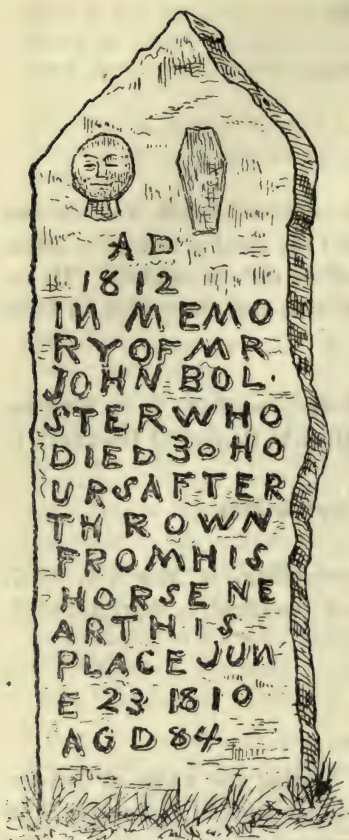 A D
1812
IN MEMO
RY OF MR
JOHN BOL.
STER WHO
DIED 30 HO
URS AFTER
THROWN
FROM HIS
HORSE NE
AR THIS
PLACE JUN
E 23 1810
AGD 84